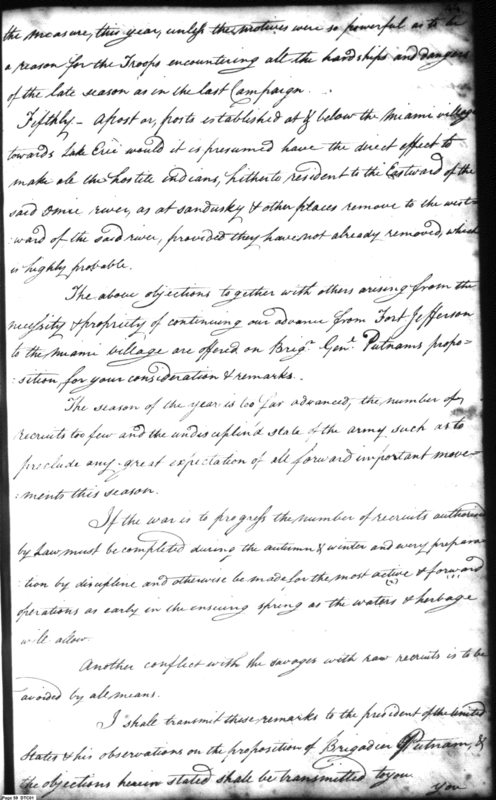 the measure, this year, unless the motives were so powerful as to be
a reason for the Troops encountering all the hardships and dangers
of the late season as in the last Campaign.
Fifthly - A post or, posts established at & below the Miami village
towards Lake Erie would it is presumed have the direct effect to
make all the hostile indians, hitherto resident to the Eastward of the
said Omie river, as at Sandusky & other places remove to the west-
:ward of the said river, provided they have not already removed, which
is highly probable.
The above objections together with others arising from the
necessity & propriety of continuing our advance from Fort Jefferson
to the Miami village are offered on Brigr. Genl. Putnams propo-
:sition, for your consideration & remarks.
The season of the year is too far advanced, the number of
recruits too few and the undisciplin'd state of the army such as to
preclude any great expectation of all forward important move-
:ments this season.
If the war is to progress the number of recruits authorised
by Law, must be completed during the autumn & winter and every prepara-
tion by discipline and otherwise be made, for the most active & forward
operations as early in the ensuing spring as the waters & herbage
will allow.
Another conflict with the savages with raw recruits is to be
avoided by all means.
I shall transmit these remarks to the president of the United
States & his observations on the proposition of Brigadier Putnam, &
the objections herein stated shall be transmitted to you.
you
Page 59 DTC01